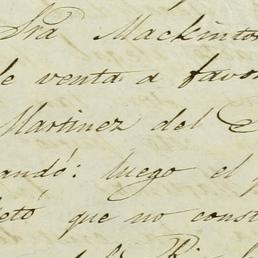 Sra Mackinto
de venta a favo
Martinez del
ando: luego el
etó que no const